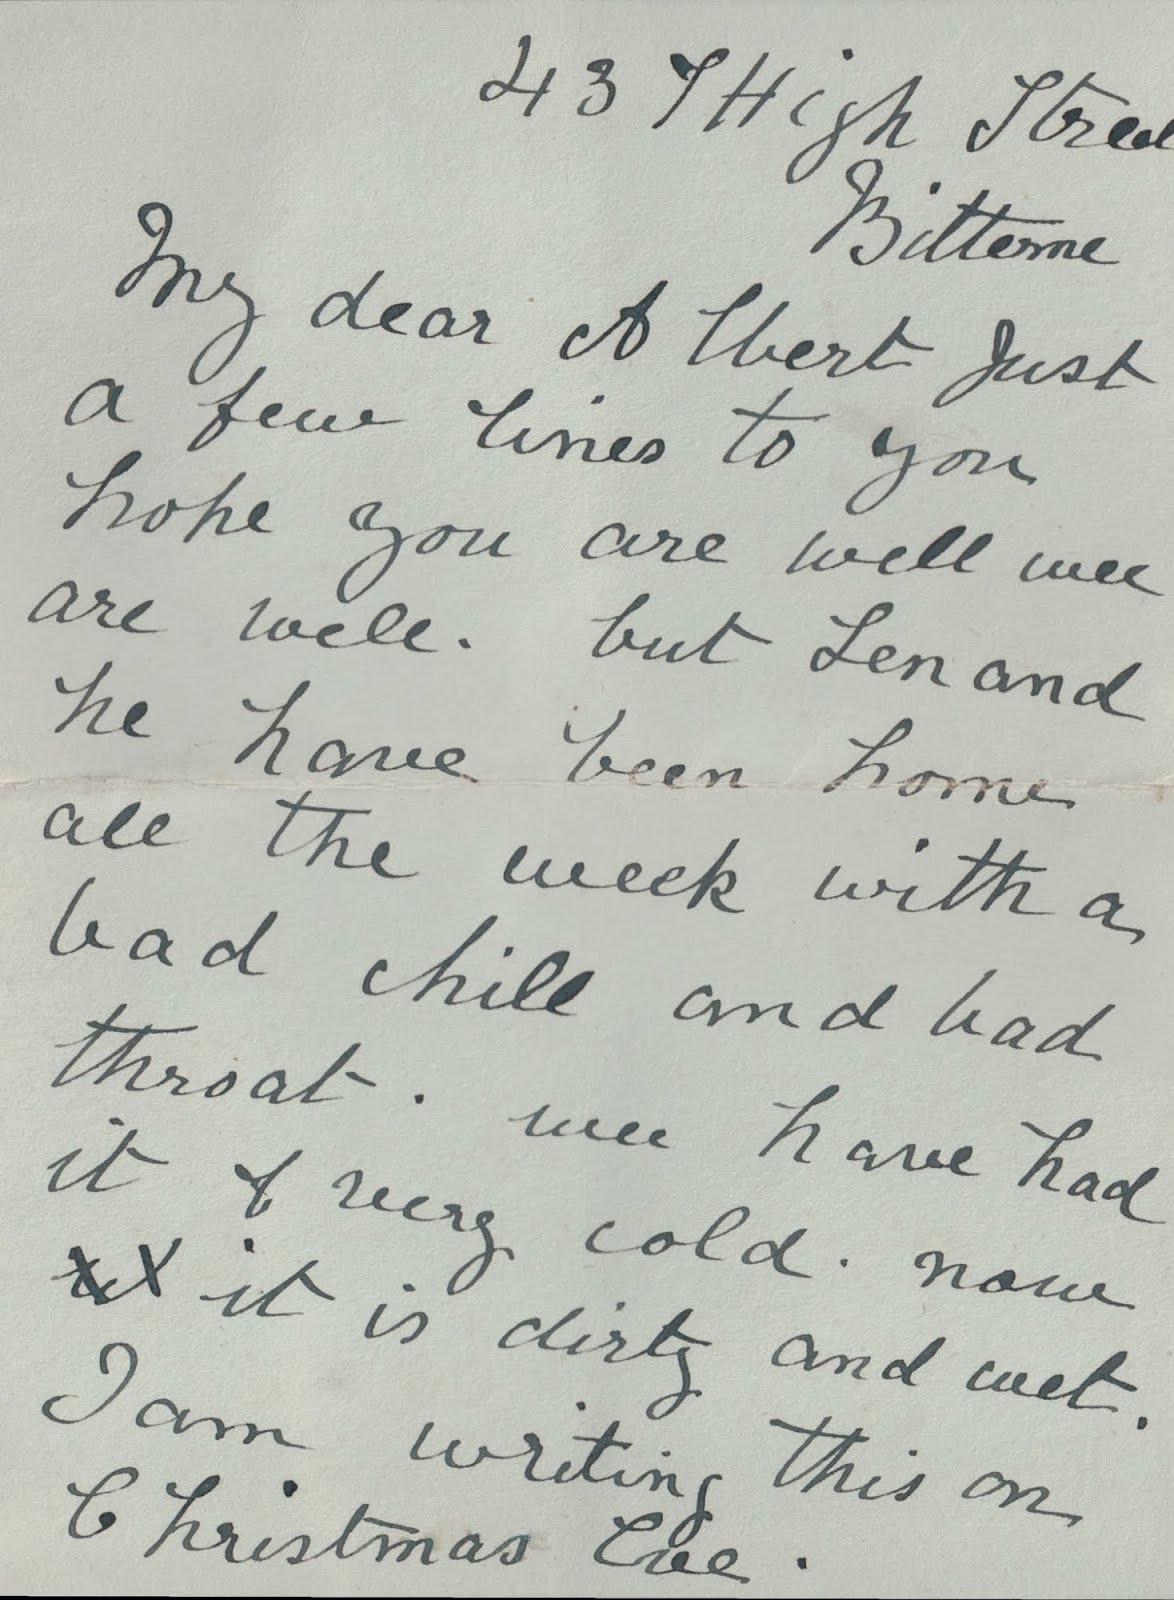 437 High Street
Bitterne
My dear Albert Just
a few lines to you
hope you are well wee
are well. but Len and
he have been home
all the week with a
bad chill and bad
throat. wee have had
it very cold. now
it is dirty and wet.
I am writing this on
Christmas Eve.